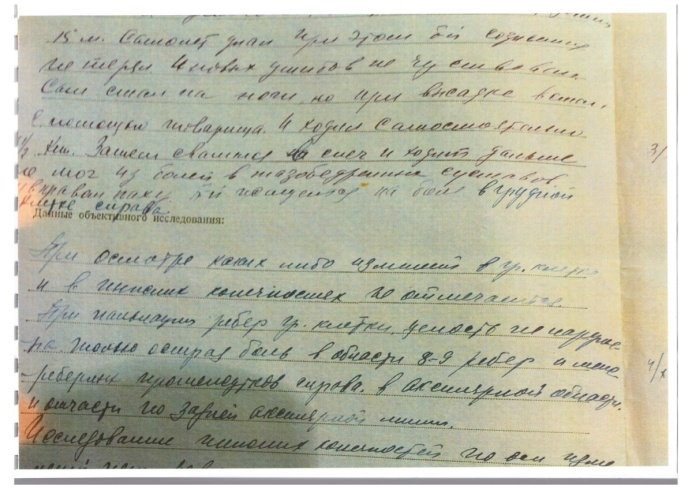 15 м. Самолет упал при этом б-й сознания
не терял и новых ушибов не чувствовал.
Сам стал на ноги, но при высадке
с помощью товарища. И ходил самостоятельно
1/2 км. Затем свалился в снег и ходить дальше
не мог из болей в тазобедренных суставах
и в правом паху. б-й жалуется на боль в грудной
клетке справа.
Данные объективного исследования:
При осмотре каких либо изменений в гр. клетке
и в нижних конечностях не отмечается.
При пальпации ребер гр. клетки, целость не наруше
на, только острая боль в области 8-9 ребер и меж
реберных промежутков справа. в аксилярной области.
и отчасти по задней аксилярной линии.
Исследование нижних конечностей по оси изме
3/
4/х